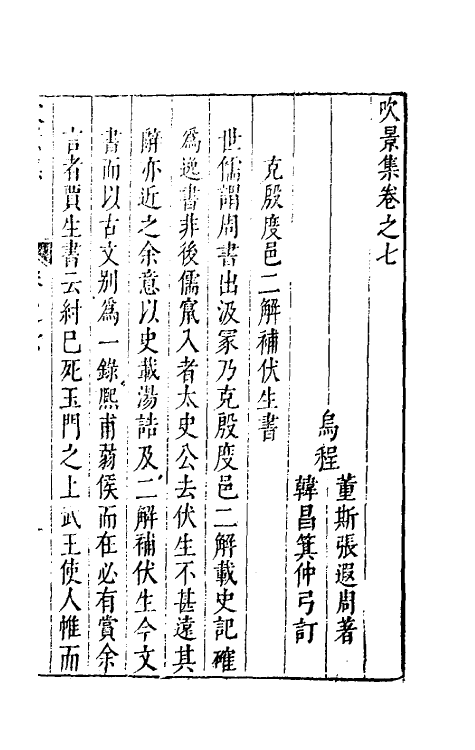 吹景集卷之七
烏程
董斯張遐周著
韓昌箕仲弓訂
克殷度邑二解補伏生書
世儒謂周書出汲冢乃克殷度邑二解載史記確
為逸書非後儒竄入者太史公去伏生不甚遠其
辭亦近之余意以史載湯誥及二解補伏生今文
書而以古文別為一錄熙甫蒻侯而在必有賞余
言者賈生書云紂巳死玉門之上武王使人帷而